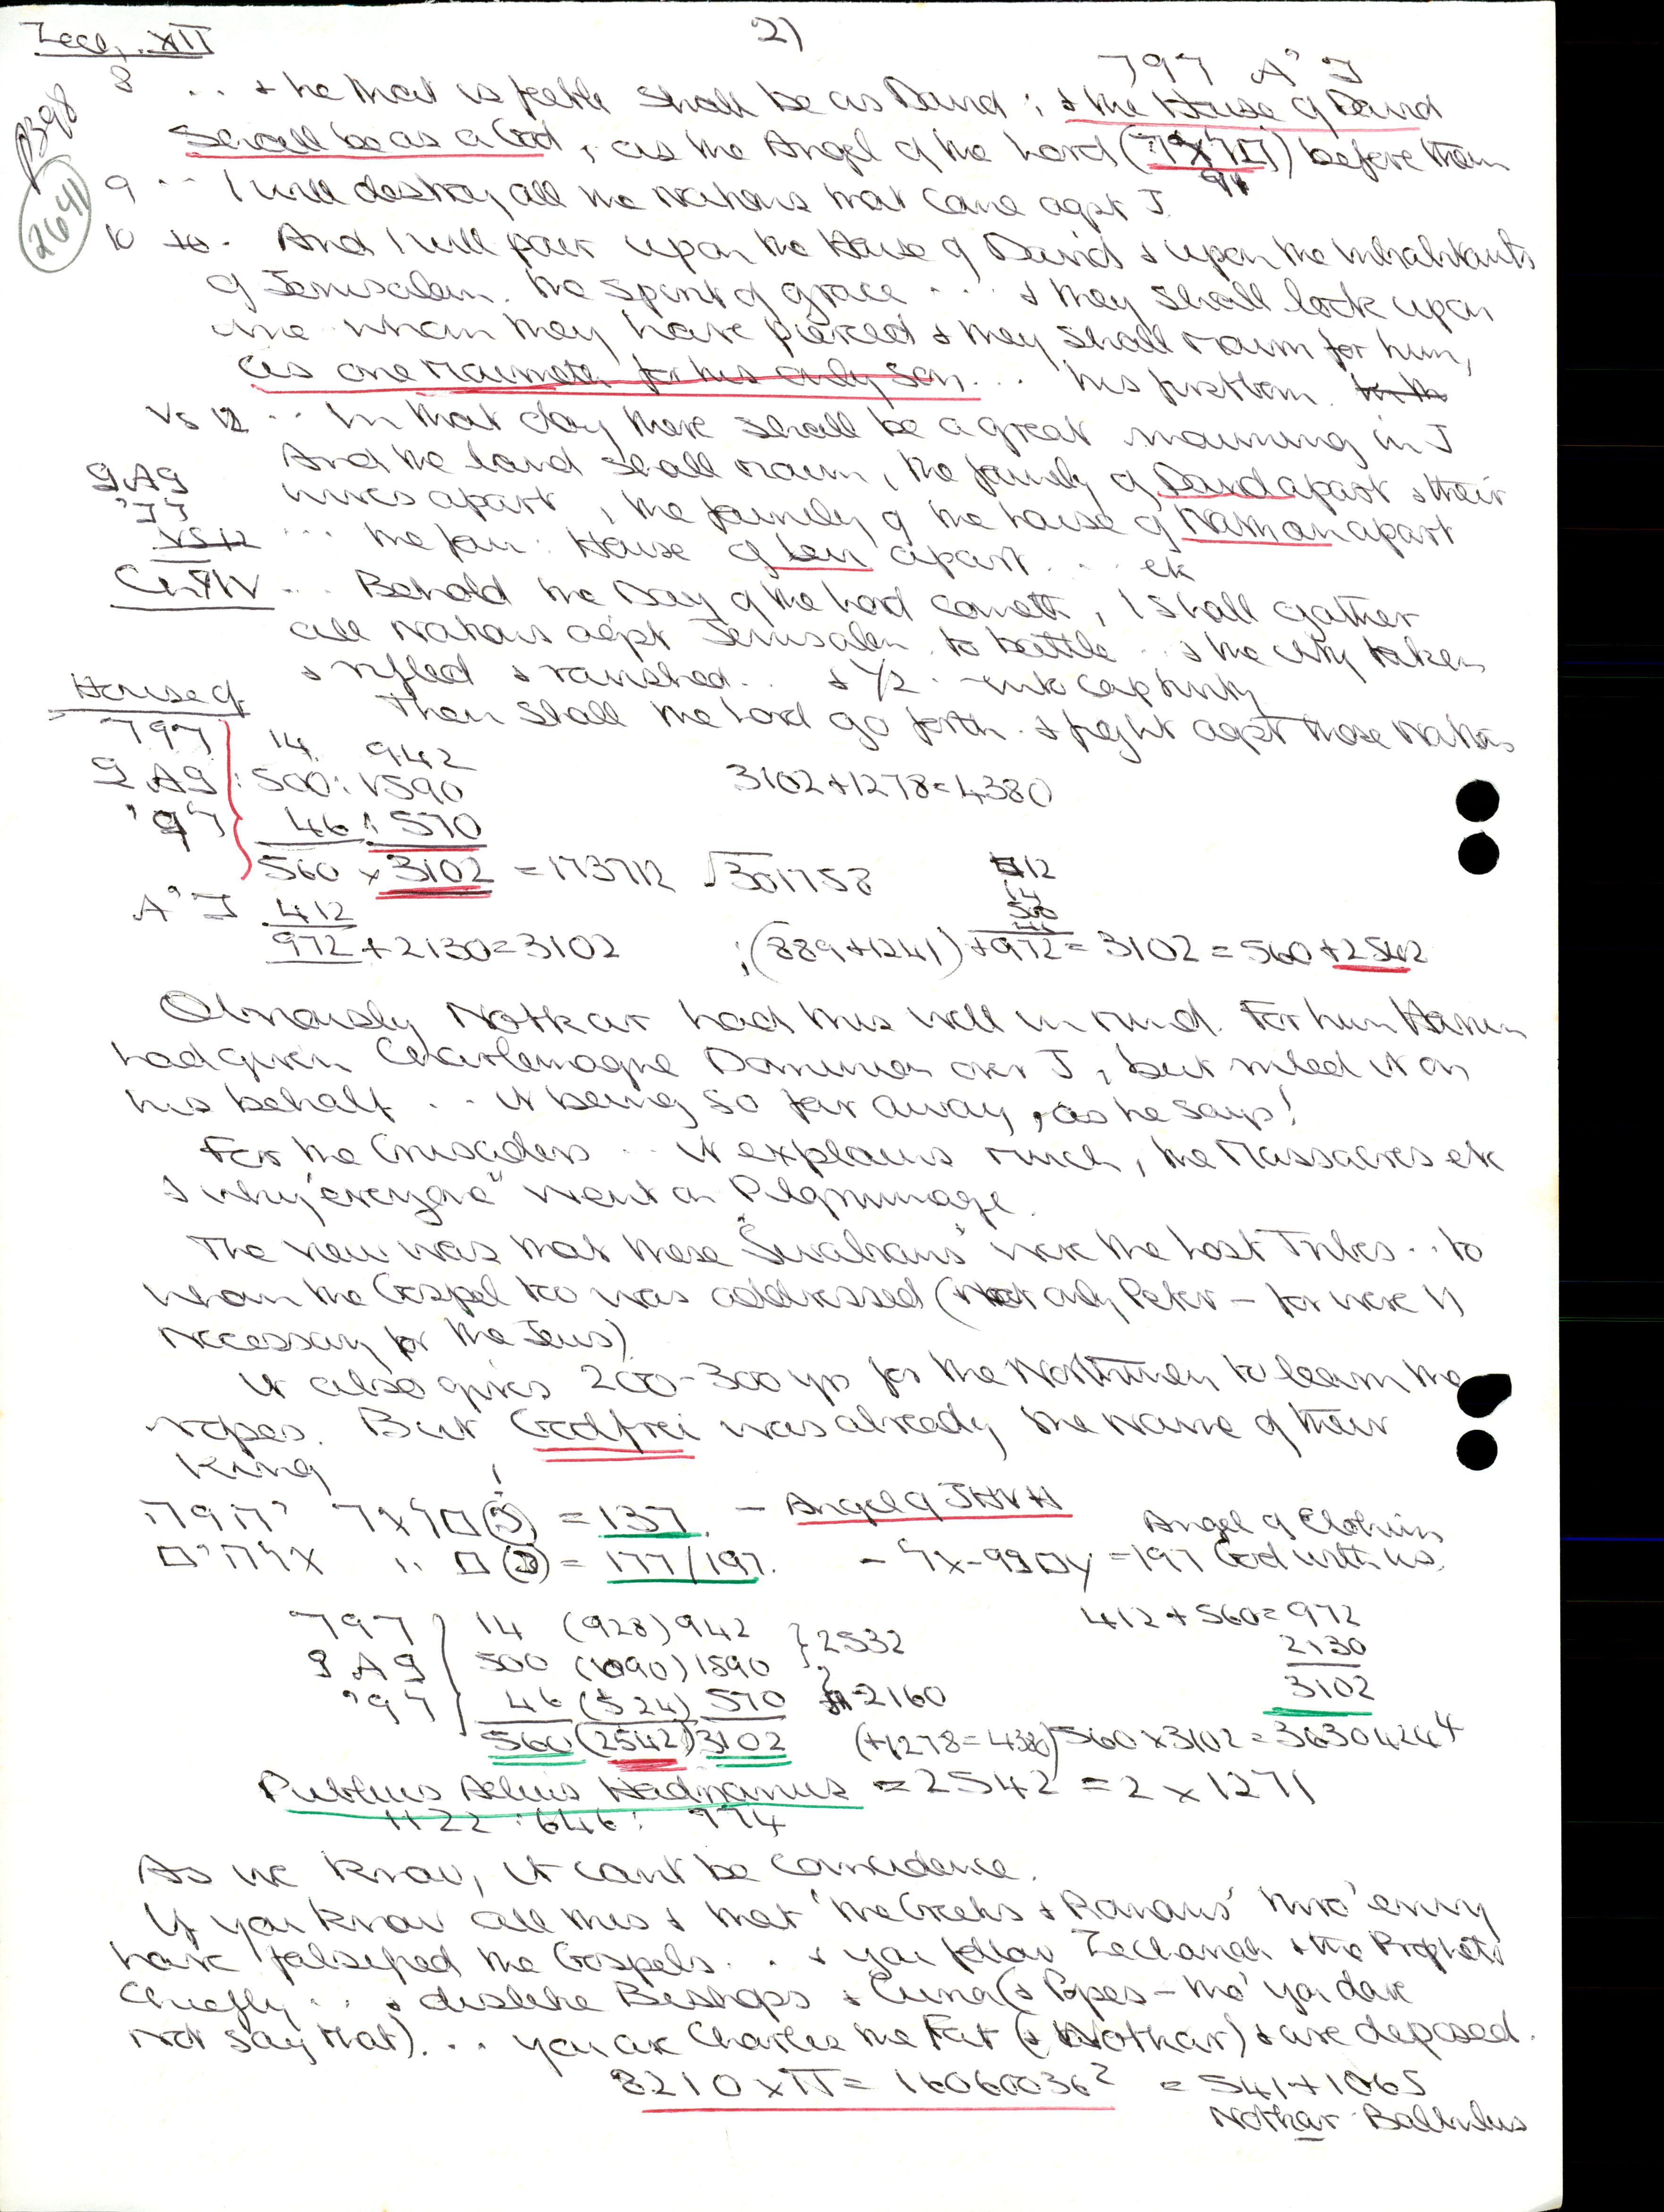 Zech. XII
2)
B98
2641
797 A'J
8 .. & he that is feeble shall be as David ; & the House of David
shall be as a God, as the Angel of the Lord ( ) before them
9 .. I will destroy all the Nations that come agst J.
10 .. And I will pour upon the House of David & upon the inhabitants
of Jerusalem. the spirit of grace ... & they shall look upon
me whom they have pierced & they shall mourn for him,
as one mourneth for his only son... his firstborn.
Vs 12 .. In that day there shall be a great mourning in J
And the land shall mourn, the family of David apart & their
wives apart, the family of the house of Nathan apart
Vs 12 ... the fam: House of Levi apart ... etc
Ch XIV ... Behold the Day of the Lord cometh, I shall gather
all Nations agst Jerusalem. to battle .. & the city taken
& rifled & ravished.. & 1/2 .. into captivity
House of
Then shall the Lord go forth. & fight agst those Nations
14 942
500 : 1590
46 : 570
3102+1278=4380
560 x 3102 = 173712 √301758
A'J 412
972 + 2130 = 3102
412
14
500
46
; (889+1241) + 972 = 3102 = 560 + 2542
Obviously Notkar had this well in mind. For him Harun
had given Charlemagne Dominion over J, but ruled it on
his behalf .. it being so far away, as he says!
For the Crusaders .. it explains much, the Massacres etc
& why "everyone" went on Pilgrimage.
The view was that these were the Lost Tribes .. to
whom the Gospel too was addressed (Not only Peter - for were it
necessary for the Jews)
It also gives 200-300 yrs for the Northmen to learn the
ropes. But Godfrei was already the name of their
King
= 137. - Angel of JHVH
Angel of Elohim
= 177/197. = 197 God with us.
14 (928) 942 } 2532
500 (1090) 1590
46 (524) 570 } 2160
560 (2542) 3102
412 + 560 = 972
2130
3102
(+1278=4380) 560 x 3102 = 36304244
Publius Aelius Hadrianus = 2542 = 2 x 1271
1122 : 646 : 774
As we know, it cant be coincidence.
If you know all this & that 'the Greeks & Romans' thro' envy
have falsified the Gospels.. & you follow Zechariah & the Prophets
chiefly .. & dislike Bishops & Curia (& Popes - tho' you dare
not say that)... you are Charles the Fat (& Notkar) & are deposed.
8210 x π = 16060036² = 541 + 1065
Notkar Balbulus